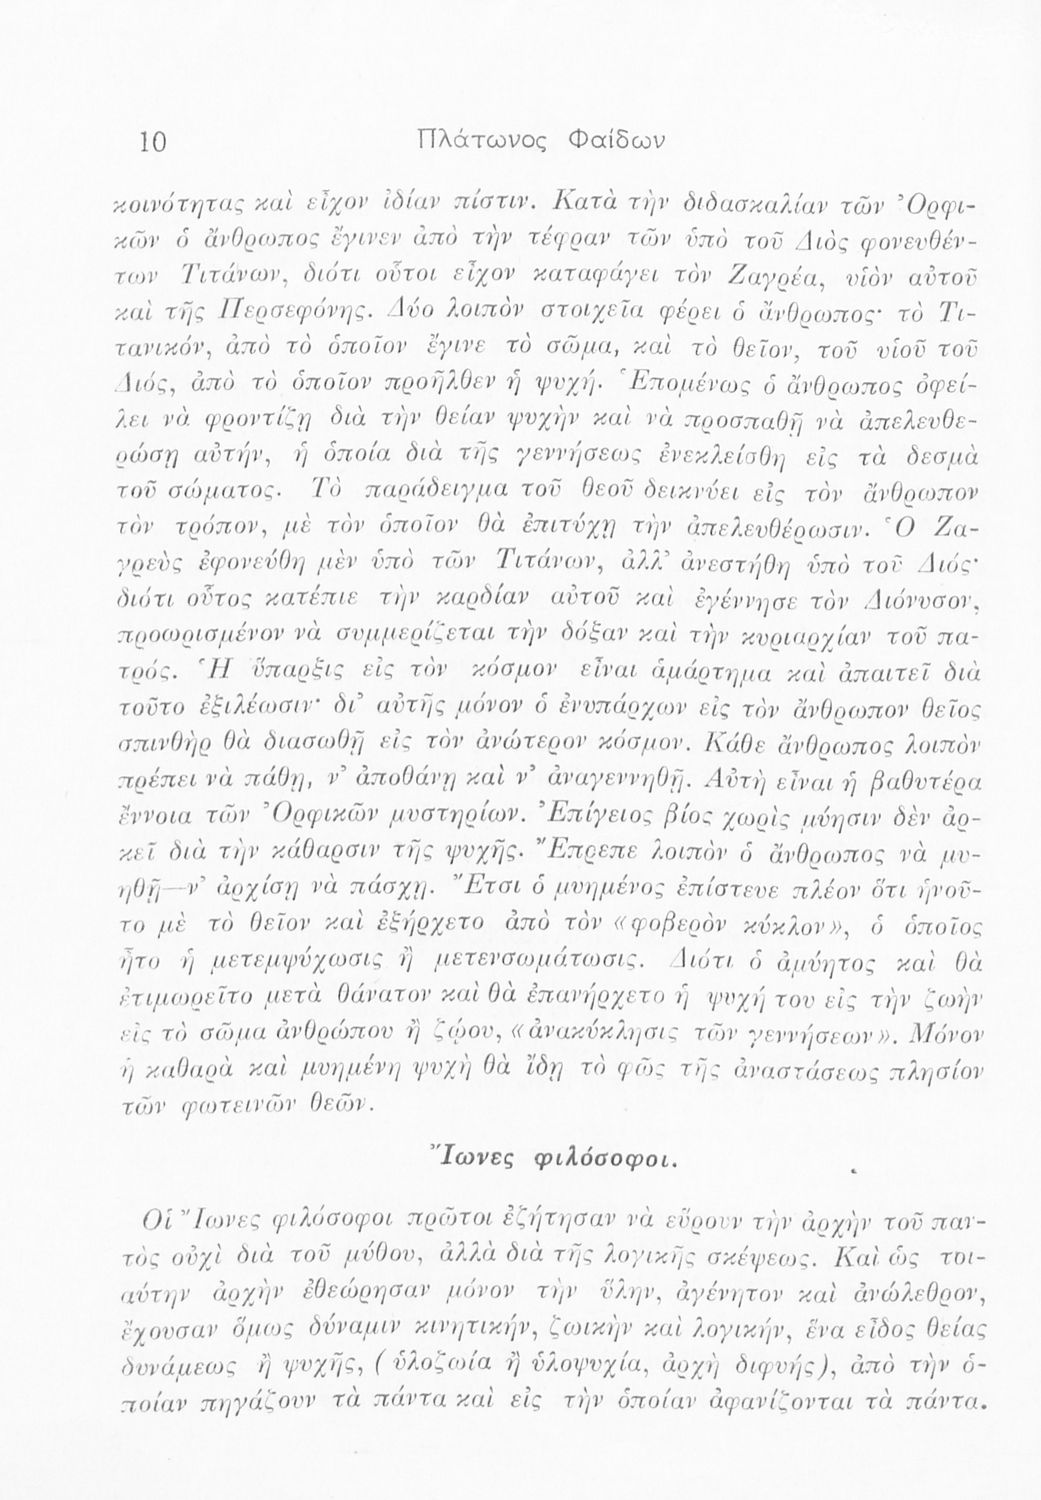 10 Πλάτωνος Φαίδων
κοινότητας καὶ εἶχον ἰδίαν πίστιν. Κατὰ τὴν διδασκαλίαν τῶν Ὀρφι-
κῶν ὁ ἄνθρωπος ἔγινεν ἀπὸ τὴν τέφραν τῶν ὑπὸ τοῦ Διὸς φονευθέν-
των Τιτάνων, διότι οὗτοι εἶχον καταφάγει τὸν Ζαγρέα, υἱὸν αὐτοῦ
καὶ τῆς Περσεφόνης. Δύο λοιπὸν στοιχεῖα φέρει ὁ ἄνθρωπος· τὸ Τι-
τανικόν, ἀπὸ τὸ ὁποῖον ἔγινε τὸ σῶμα, καὶ τὸ θεῖον, τοῦ υἱοῦ τοῦ
Διός, ἀπὸ τὸ ὁποῖον προῆλθεν ἡ ψυχή. Ἑπομένως ὁ ἄνθρωπος ὀφεί-
λει νὰ φροντίζῃ διὰ τὴν θείαν ψυχὴν καὶ νὰ προσπαθῇ νὰ ἀπελευθε-
ρώσῃ αὐτήν, ἡ ὁποία διὰ τῆς γεννήσεως ἐνεκλείσθη εἰς τὰ δεσμὰ
τοῦ σώματος. Τὸ παράδειγμα τοῦ θεοῦ δεικνύει εἰς τὸν ἄνθρωπον
τὸν τρόπον, μὲ τὸν ὁποῖον θὰ ἐπιτύχῃ τὴν ἀπελευθέρωσιν. Ὁ Ζα-
γρεὺς ἐφονεύθη μὲν ὑπὸ τῶν Τιτάνων, ἀλλ’ ἀνεστήθη ὑπὸ τοῦ Διός·
διότι οὗτος κατέπιε τὴν καρδίαν αὐτοῦ καὶ ἐγέννησε τὸν Διόνυσον,
προωρισμένον νὰ συμμερίζεται τὴν δόξαν καὶ τὴν κυριαρχίαν τοῦ πα-
τρός. Ἡ ὕπαρξις εἰς τὸν κόσμον εἶναι ἁμάρτημα καὶ ἀπαιτεῖ διὰ
τοῦτο ἐξιλέωσιν· δι’ αὐτῆς μόνον ὁ ἐνυπάρχων εἰς τὸν ἄνθρωπον θεῖος
σπινθὴρ θὰ διασωθῇ εἰς τὸν ἀνώτερον κόσμον. Κάθε ἄνθρωπος λοιπὸν
πρέπει νὰ πάθῃ, ν’ ἀποθάνῃ καὶ ν’ ἀναγεννηθῇ. Αὐτὴ εἶναι ἡ βαθυτέρα
ἔννοια τῶν Ὀρφικῶν μυστηρίων. Ἐπίγειος βίος χωρὶς μύησιν δὲν ἀρ-
κεῖ διὰ τὴν κάθαρσιν τῆς ψυχῆς. Ἔπρεπε λοιπὸν ὁ ἄνθρωπος νὰ μυ-
ηθῇ—ν’ ἀρχίσῃ νὰ πάσχῃ. Ἔτσι ὁ μυημένος ἐπίστευε πλέον ὅτι ἡνοῦ-
το μὲ τὸ θεῖον καὶ ἐξήρχετο ἀπὸ τὸν «φοβερὸν κύκλον», ὁ ὁποῖος
ἦτο ἡ μετεμψύχωσις ἢ μετενσωμάτωσις. Διότι ὁ ἀμύητος καὶ θὰ
ἐτιμωρεῖτο μετὰ θάνατον καὶ θὰ ἐπανήρχετο ἡ ψυχή του εἰς τὴν ζωὴν
εἰς τὸ σῶμα ἀνθρώπου ἢ ζῴου, «ἀνακύκλησις τῶν γεννήσεων». Μόνον
ἡ καθαρὰ καὶ μυημένη ψυχὴ θὰ ἴδῃ τὸ φῶς τῆς ἀναστάσεως πλησίον
τῶν φωτεινῶν θεῶν.
Ἴωνες φιλόσοφοι.
Οἱ Ἴωνες φιλόσοφοι πρῶτοι ἐζήτησαν νὰ εὕρουν τὴν ἀρχὴν τοῦ παν-
τὸς οὐχὶ διὰ τοῦ μύθου, ἀλλὰ διὰ τῆς λογικῆς σκέψεως. Καὶ ὡς τοι-
αύτην ἀρχὴν ἐθεώρησαν μόνον τὴν ὕλην, ἀγένητον καὶ ἀνώλεθρον,
ἔχουσαν ὅμως δύναμιν κινητικήν, ζωικὴν καὶ λογικήν, ἕνα εἶδος θείας
δυνάμεως ἢ ψυχῆς, (ὑλοζωία ἢ ὑλοψυχία, ἀρχὴ διφυής), ἀπὸ τὴν ὁ-
ποίαν πηγάζουν τὰ πάντα καὶ εἰς τὴν ὁποίαν ἀφανίζονται τὰ πάντα.